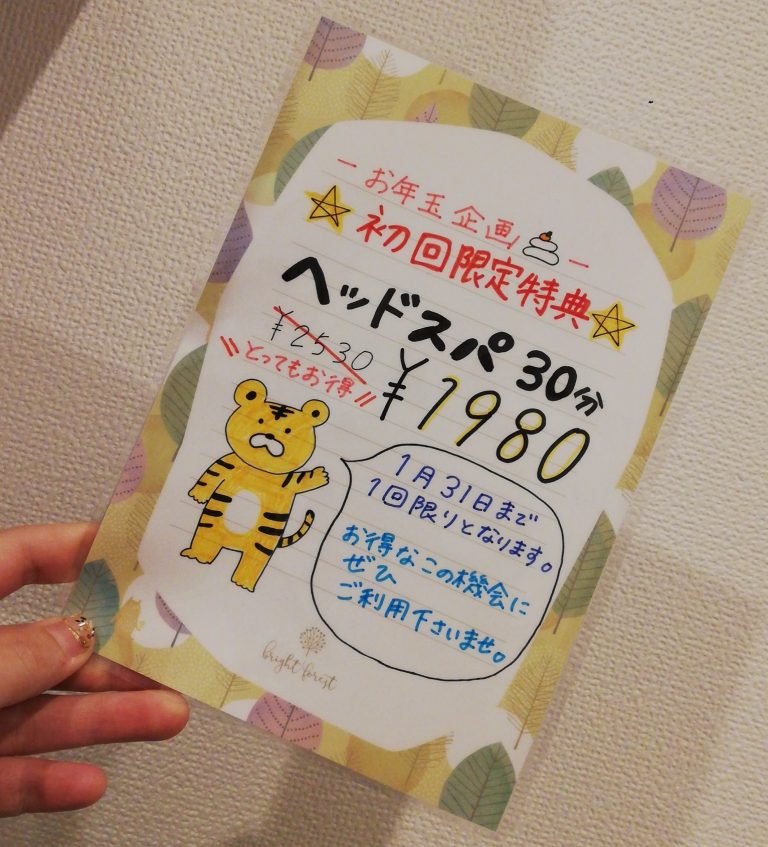 ーお年玉企画ー
初回限定特典
ヘッドスパ30分
¥2530
\\とってもお得//
¥1980
1月31日まで
1回限りとなります。
お得なこの機会に
ぜひ
ご利用下さいませ。
bright forest